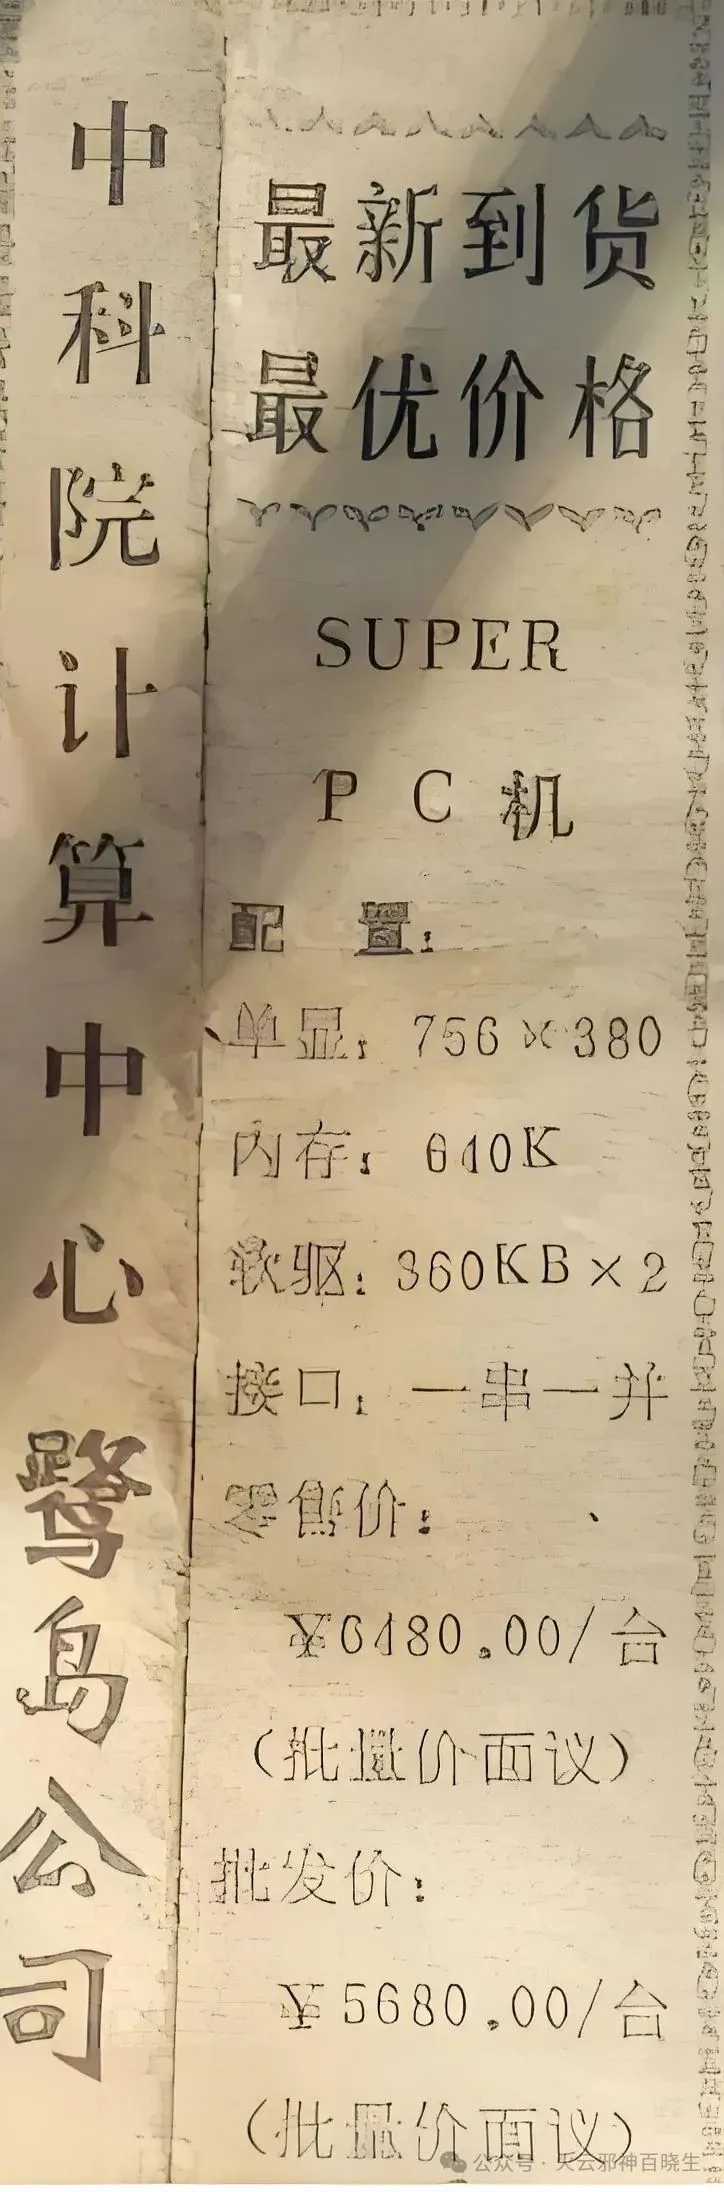 中科院计算中心鹭岛公司
最新到货
最优价格
SUPER
PC机
配置：
单显：756×380
内存：640K
软驱：360KB×2
接口：一串一并
零售价：
¥6480.00/台
（批量价面议）
批发价：
¥5680.00/台
（批量价面议）
公众号·天云邪神百晓生